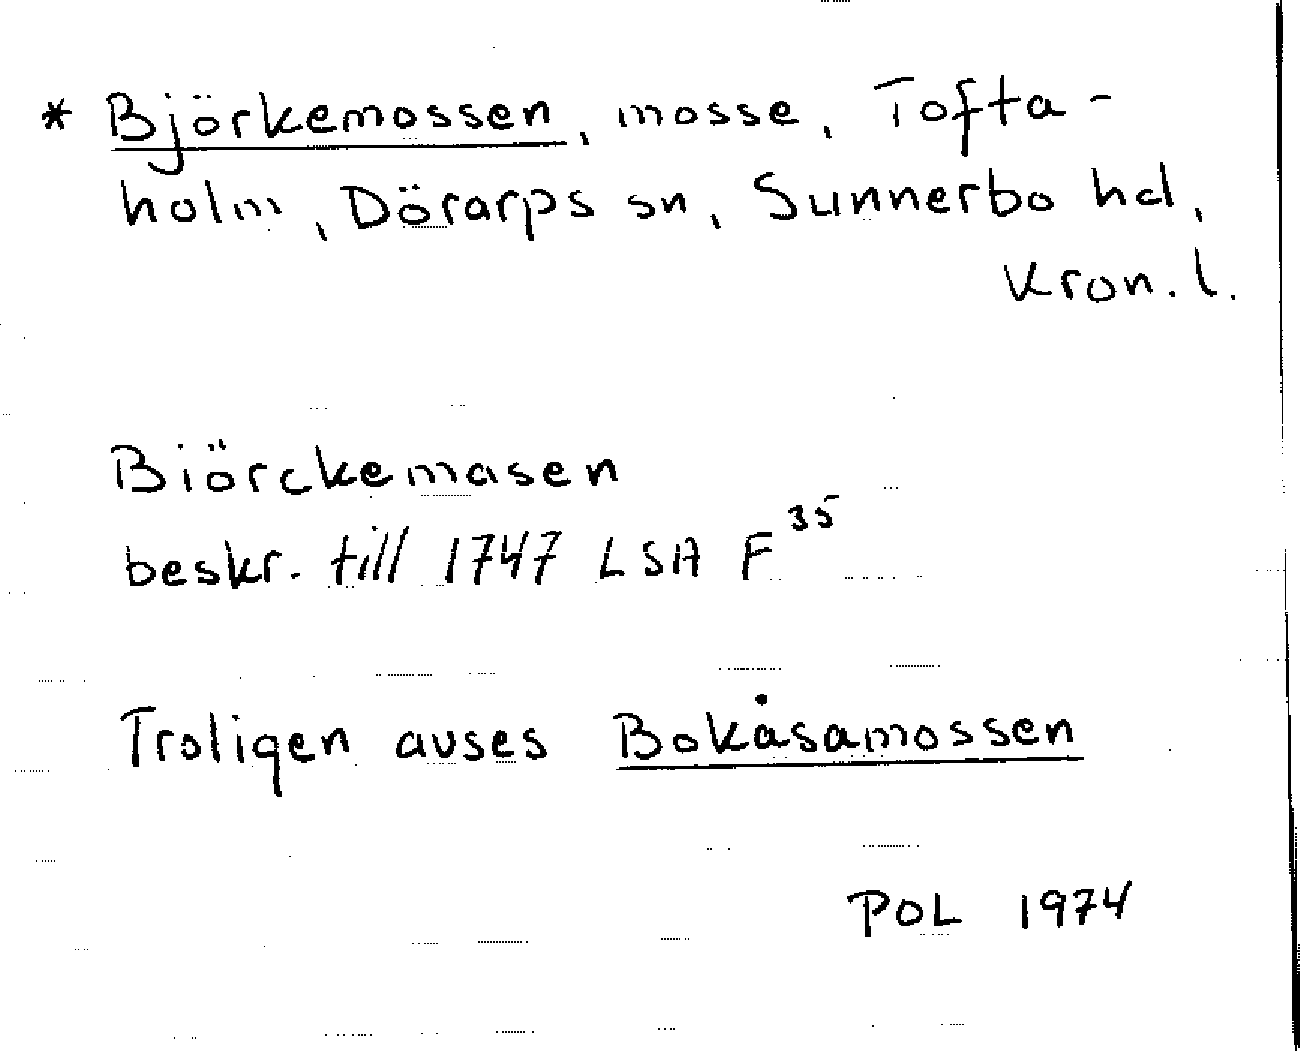 * Björkemossen, mosse, Tofta-
holm, Dörarps sn, Sunnerbo hd,
Kron. l.
Biörckemasen
beskr. till 1747 LSA F 35
Troligen avses Bokåsamossen
POL 1974